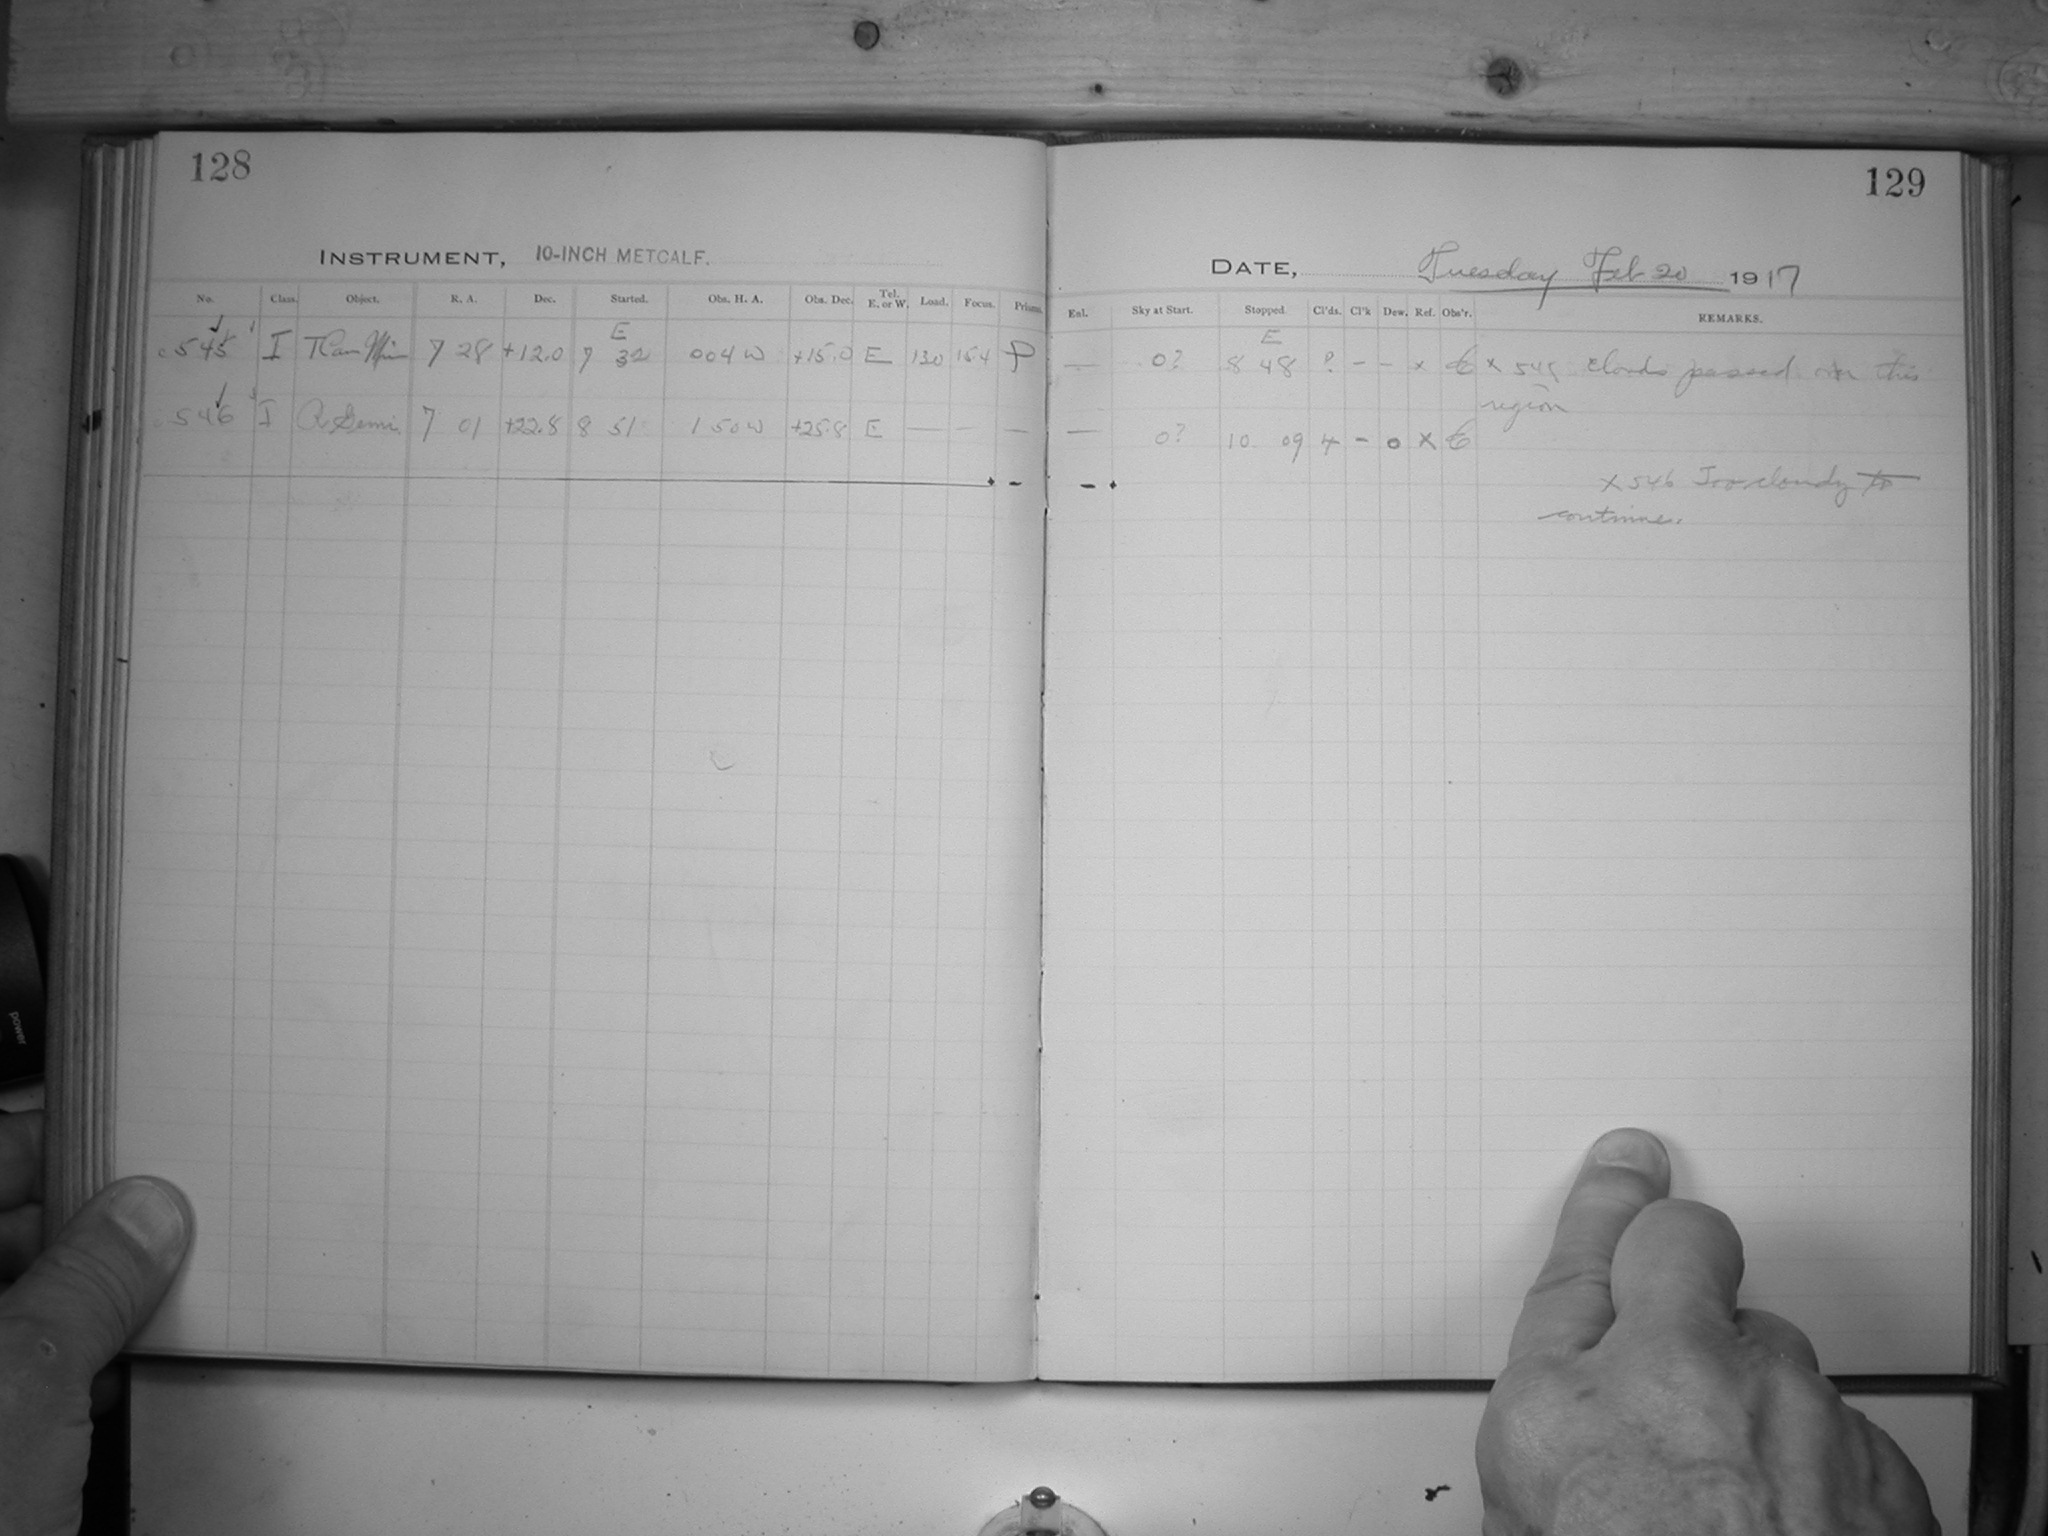 128
129
INSTRUMENT, 10-INCH METCALF.
DATE, Tuesday Feb 20 1917
No. Class. Object. R. A. Dec. Started. Obs. H. A. Obs. Dec. Tel. E. or W. Load. Focus. Prisms.
Enl. Sky at Start. Stopped. Cl'ds. Cl'k Dew. Ref. Obs'r. REMARKS.
E
E
c 545 I 7 28 +12.0 7 32 004 W +15.0 E 130 154 P
— 0? 8 48 ? - - x x 545 clouds passed over this
region
c 546 I R Gemi. 7 01 +22.8 8 51 1 50 W +25.8 E — — —
— 0? 10 09 4 - 0 X
x 546 Too cloudy to
continue.
power